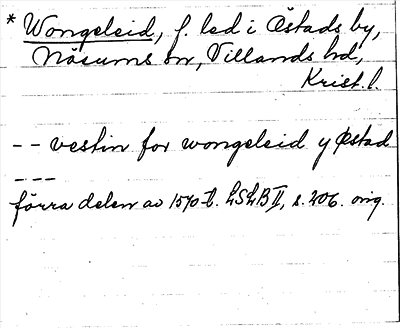 * Wongeleid, f. led i Östads by,
Näsums sn, Villands hd,
Krist. l.
-- vestin for wongeleid y Østad
---
förra delen av 1570-t. LSLB II, s. 206. orig.